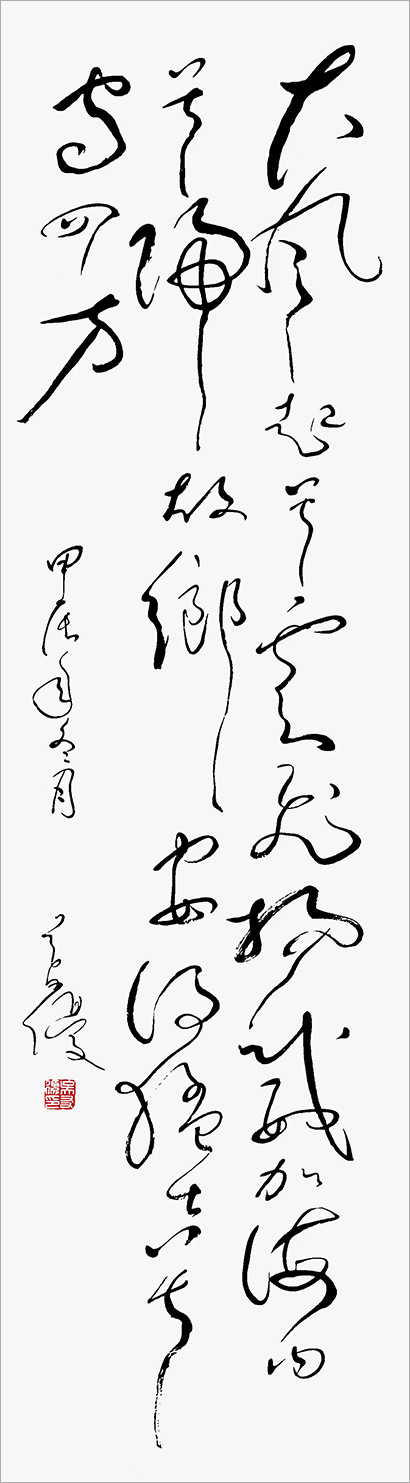 大風起兮雲飛揚威加海内
兮歸故鄉安得猛士兮
守四方
甲辰年冬月